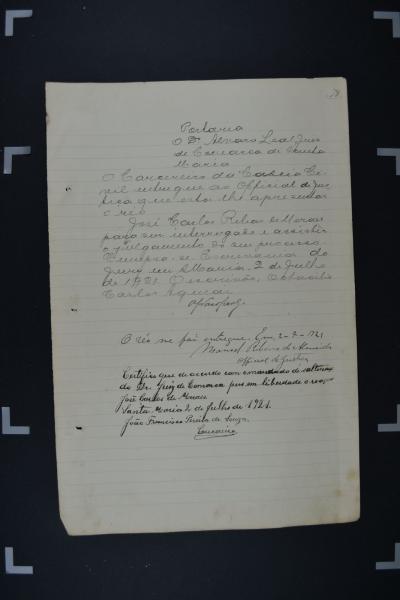 Portaria
O Dr Alvaro Leal Juiz
de Comarca de Santa
Maria
O Carcereiro da Cadeia Ci-
vil entregue ao Official de Jus-
tiça que esta lhe apresentar
o réo
José Carlos de Moraes
para ser interrogado e assistir
o julgamento do seu processo.
Cumpra-se. Escrivania do
Jury em S. Maria, 2 de Julho
de 1921. O escrivão,
Carlos
O réo me foi entregue. Em, 2-7-921
Manoel Ribeiro de Almeida
Official de Justiça
Certifico que de acordo com o mandado de
do Dr. Juiz de Comarca puz em liberdade o reo
José Carlos de Moraes
Santa Maria 2 de Julho de 1921.
João Francisco Pereira de Souza.
Carcereiro